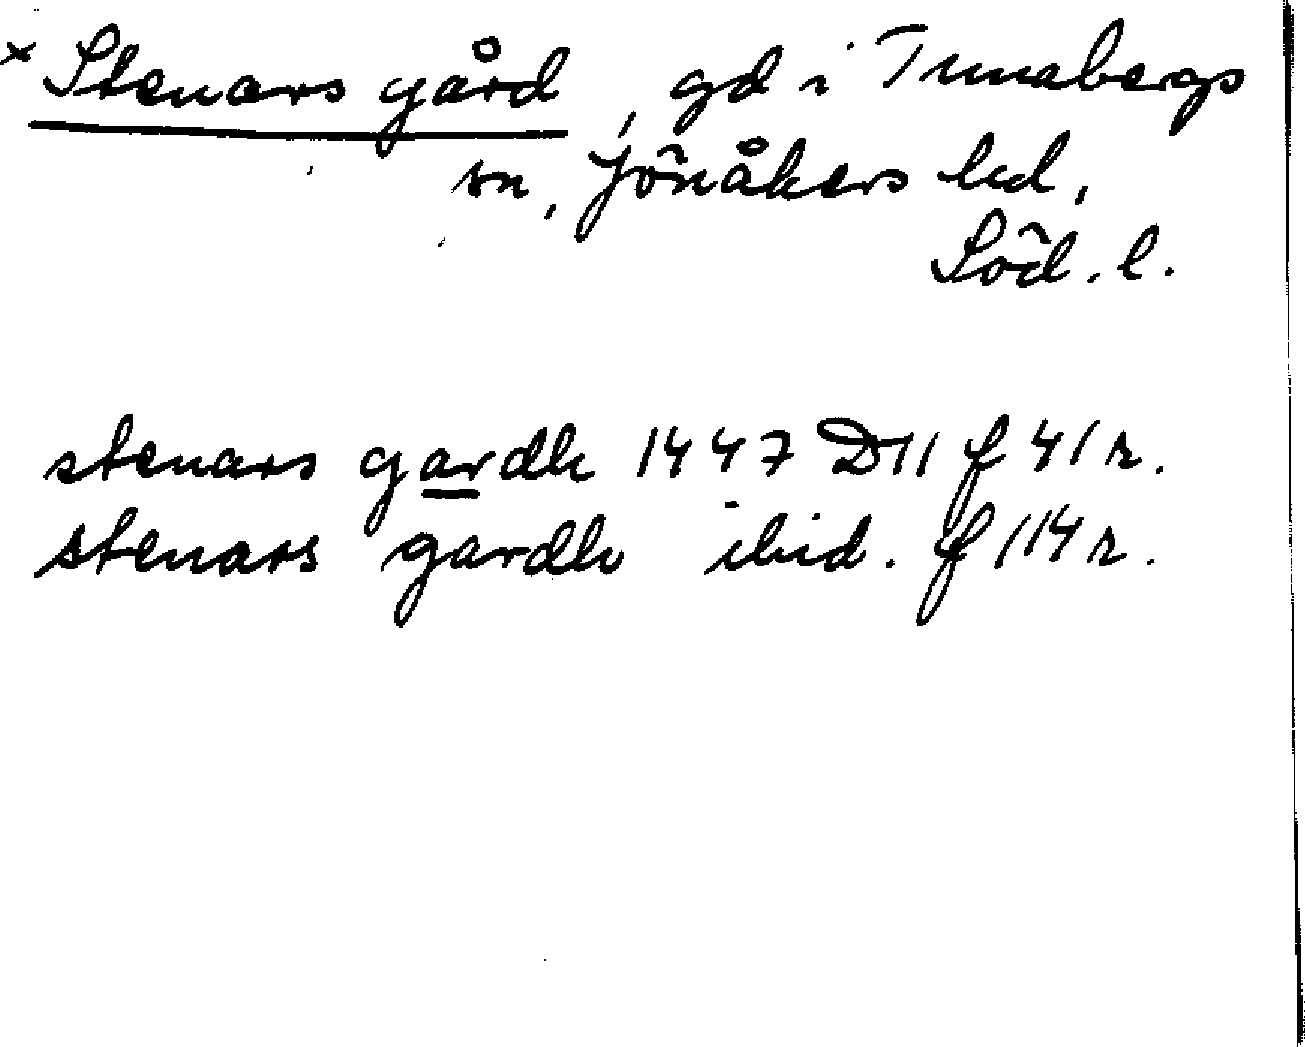 × Stenars gård, gd i Tunabergs
sn, Jönåkers hd,
Söd. l.
stenars gardh 1447 D11 f 41 r.
stenars gardh ibid. f 114 r.